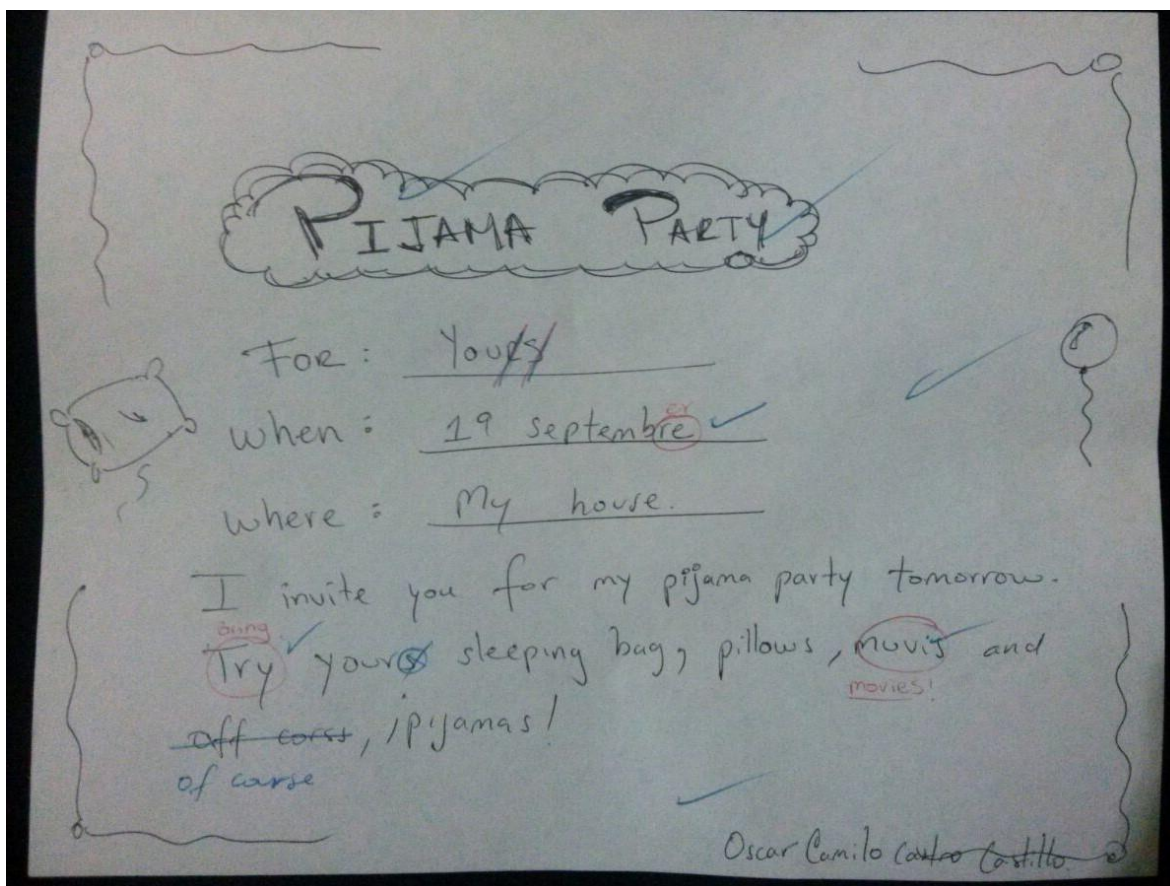 PIJAMA PARTY
For: Yours
when: 19 septembre
er
where: My house.
I invite you for my pijama party tomorrow.
bring
Try yours sleeping bag, pillows, muvis and
movies!
off corss, ¡pijamas!
of carse
Oscar Camilo Castro Castillo.